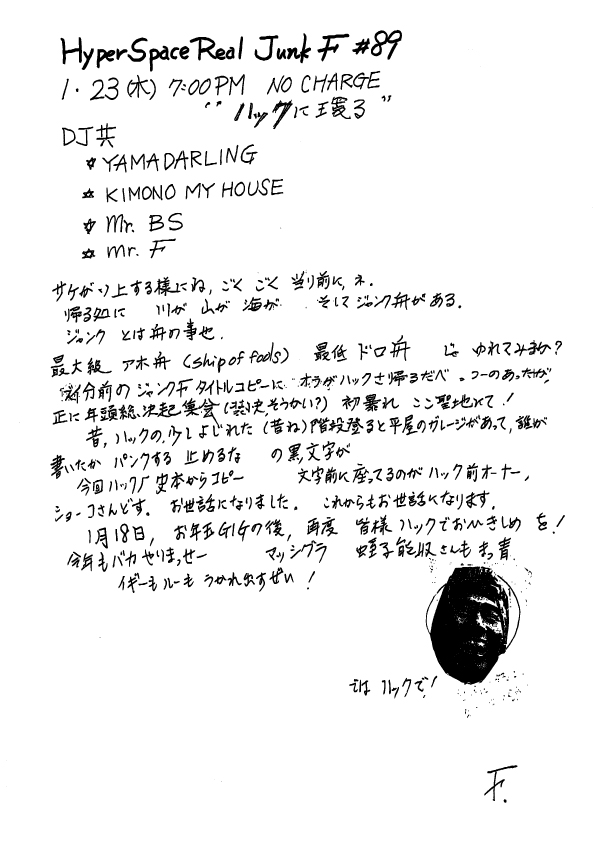 HyperSpaceReal Junk F #89
1・23(木) 7:00PM NO CHARGE
"ハックに環る"
DJ共
☆YAMADARLING
☆KIMONO MY HOUSE
☆Mr. BS
☆mr. F
サケが川上する様にね、ごく ごく 当り前に、ネ.
帰る処に 川が 山が 海が そしてジャンク舟がある.
ジャンク とは舟の事也.
最大級 アホ舟 (ship of fools) 最低 ドロ舟 じゃ ゆれてみまっか?
随分前のジャンクFタイトルコピーに オラがハックさ帰るだべ。つーのあったが、
正に年頭総決起集会(そうかい?) 初暴れ ここ聖地にて!
昔、ハックの、少しよじれた(昔ね)階段登ると平屋のガレージがあって、誰が
書いたか パンクする 止めるな の黒文字が
今回ハック 史本からコピー 文字前に座ってるのがハック前オーナー,
ショーコさんどす. お世話になりました. これからもお世話になります.
1月18日, お年玉GIGの後, 再度 皆様ハックでお しめ を!
今年もバカやりまっせー マッシグラ 蛭子能収さんも まっ青
イギーもルーも うかれ出すぜい!
では ハックで!
F.